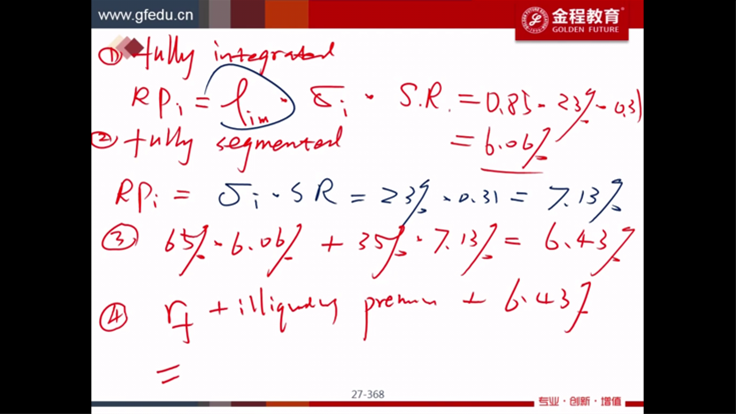 www.gfedu.cn
金程教育
GOLDEN FUTURE
① fully integrated
RPi = ρim · σi · S.R. = 0.85 · 23% · 0.31
= 6.06%
② fully segmented
RPi = σi · SR = 23% · 0.31 = 7.13%
③ 65% · 6.06% + 35% · 7.13% = 6.43%
④ rf + illiquidity premium + 6.43%
=
27-368
专业·创新·增值